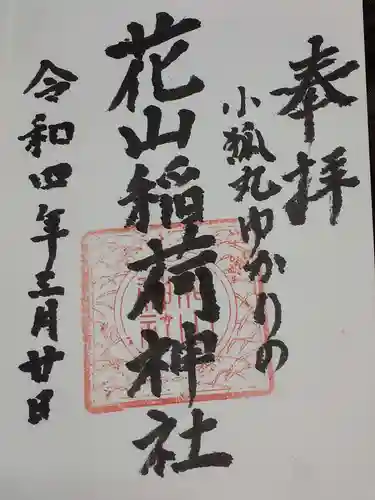 奉拝
小狐丸ゆかりの
花山稲荷神社
令和四年三月廿日